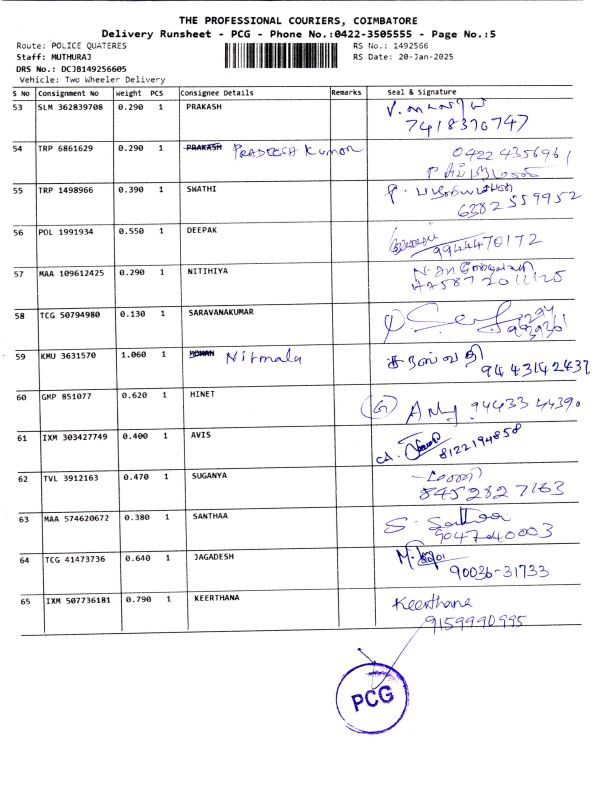 THE PROFESSIONAL COURIERS, COIMBATORE
Delivery Runsheet - PCG - Phone No.:0422-3505555 - Page No.:5
Route: POLICE QUATERES RS No.: 1492566
Staff: MUTHURAJ RS Date: 20-Jan-2025
DRS No.: DCJB149256605
Vehicle: Two Wheeler Delivery
S No Consignment No Weight PCS Consignee Details Remarks Seal & Signature
53 SLM 362839708 0.290 1 PRAKASH
7418370747
54 TRP 6861629 0.290 1 PRAKASH PRADEESH Kumar 0422 4356961
55 TRP 1498966 0.390 1 SWATHI
6382559952
56 POL 1991934 0.550 1 DEEPAK
9944470172
57 MAA 109612425 0.290 1 NITHIYA
58 TCG 50794980 0.130 1 SARAVANAKUMAR
59 KMU 3631570 1.060 1 MOHAN Nirmala சரஸ்வதி
9443142437
60 GMP 851077 0.620 1 HINET 94433 44390
61 IXM 303427749 0.400 1 AVIS
8122194858
62 TVL 3912163 0.470 1 SUGANYA
8452827163
63 MAA 574620672 0.380 1 SANTHAA S. Santhaa
9047240003
64 TCG 41473736 0.640 1 JAGADESH
90036-31733
65 IXM 507736181 0.790 1 KEERTHANA Keerthana
9159990995
PCG